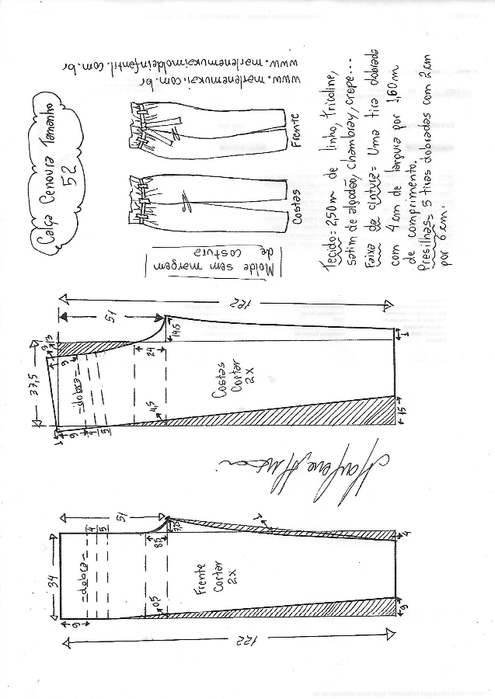 Calça Cenoura Tamanho
52
www.marlenemukai.com.br
www.marlenemukaimoldeinfantil.com.br
Frente
Costas
Tecido= 2,50m de linho, tricoline,
satim de algodão, chambray, crepe...
Faixa da cintura= Uma tira dobrada
com 4 cm de largura por 1,60m
de comprimento.
Presilhas= 5 tiras dobradas com 2 cm
por 6 cm.
Molde sem margem
de costura
122
51
37,5
9
-dobra-
4
5
24
14,5
4,5
1
15
Costas
Cortar
2x
Marlene Mukai
51
34
9
-dobra-
4
5
8,5
0,5
1
4
9
Frente
Cortar
2x
122